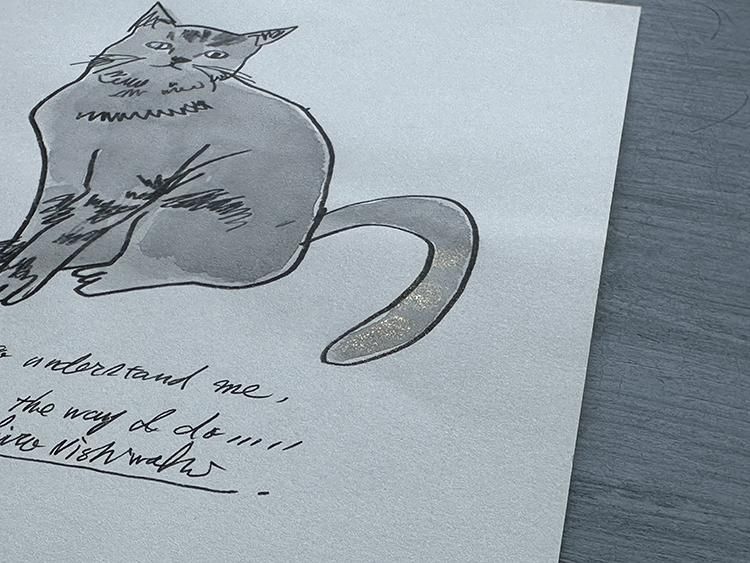 understand me,
the way I do,,,,,
Nishiwaki